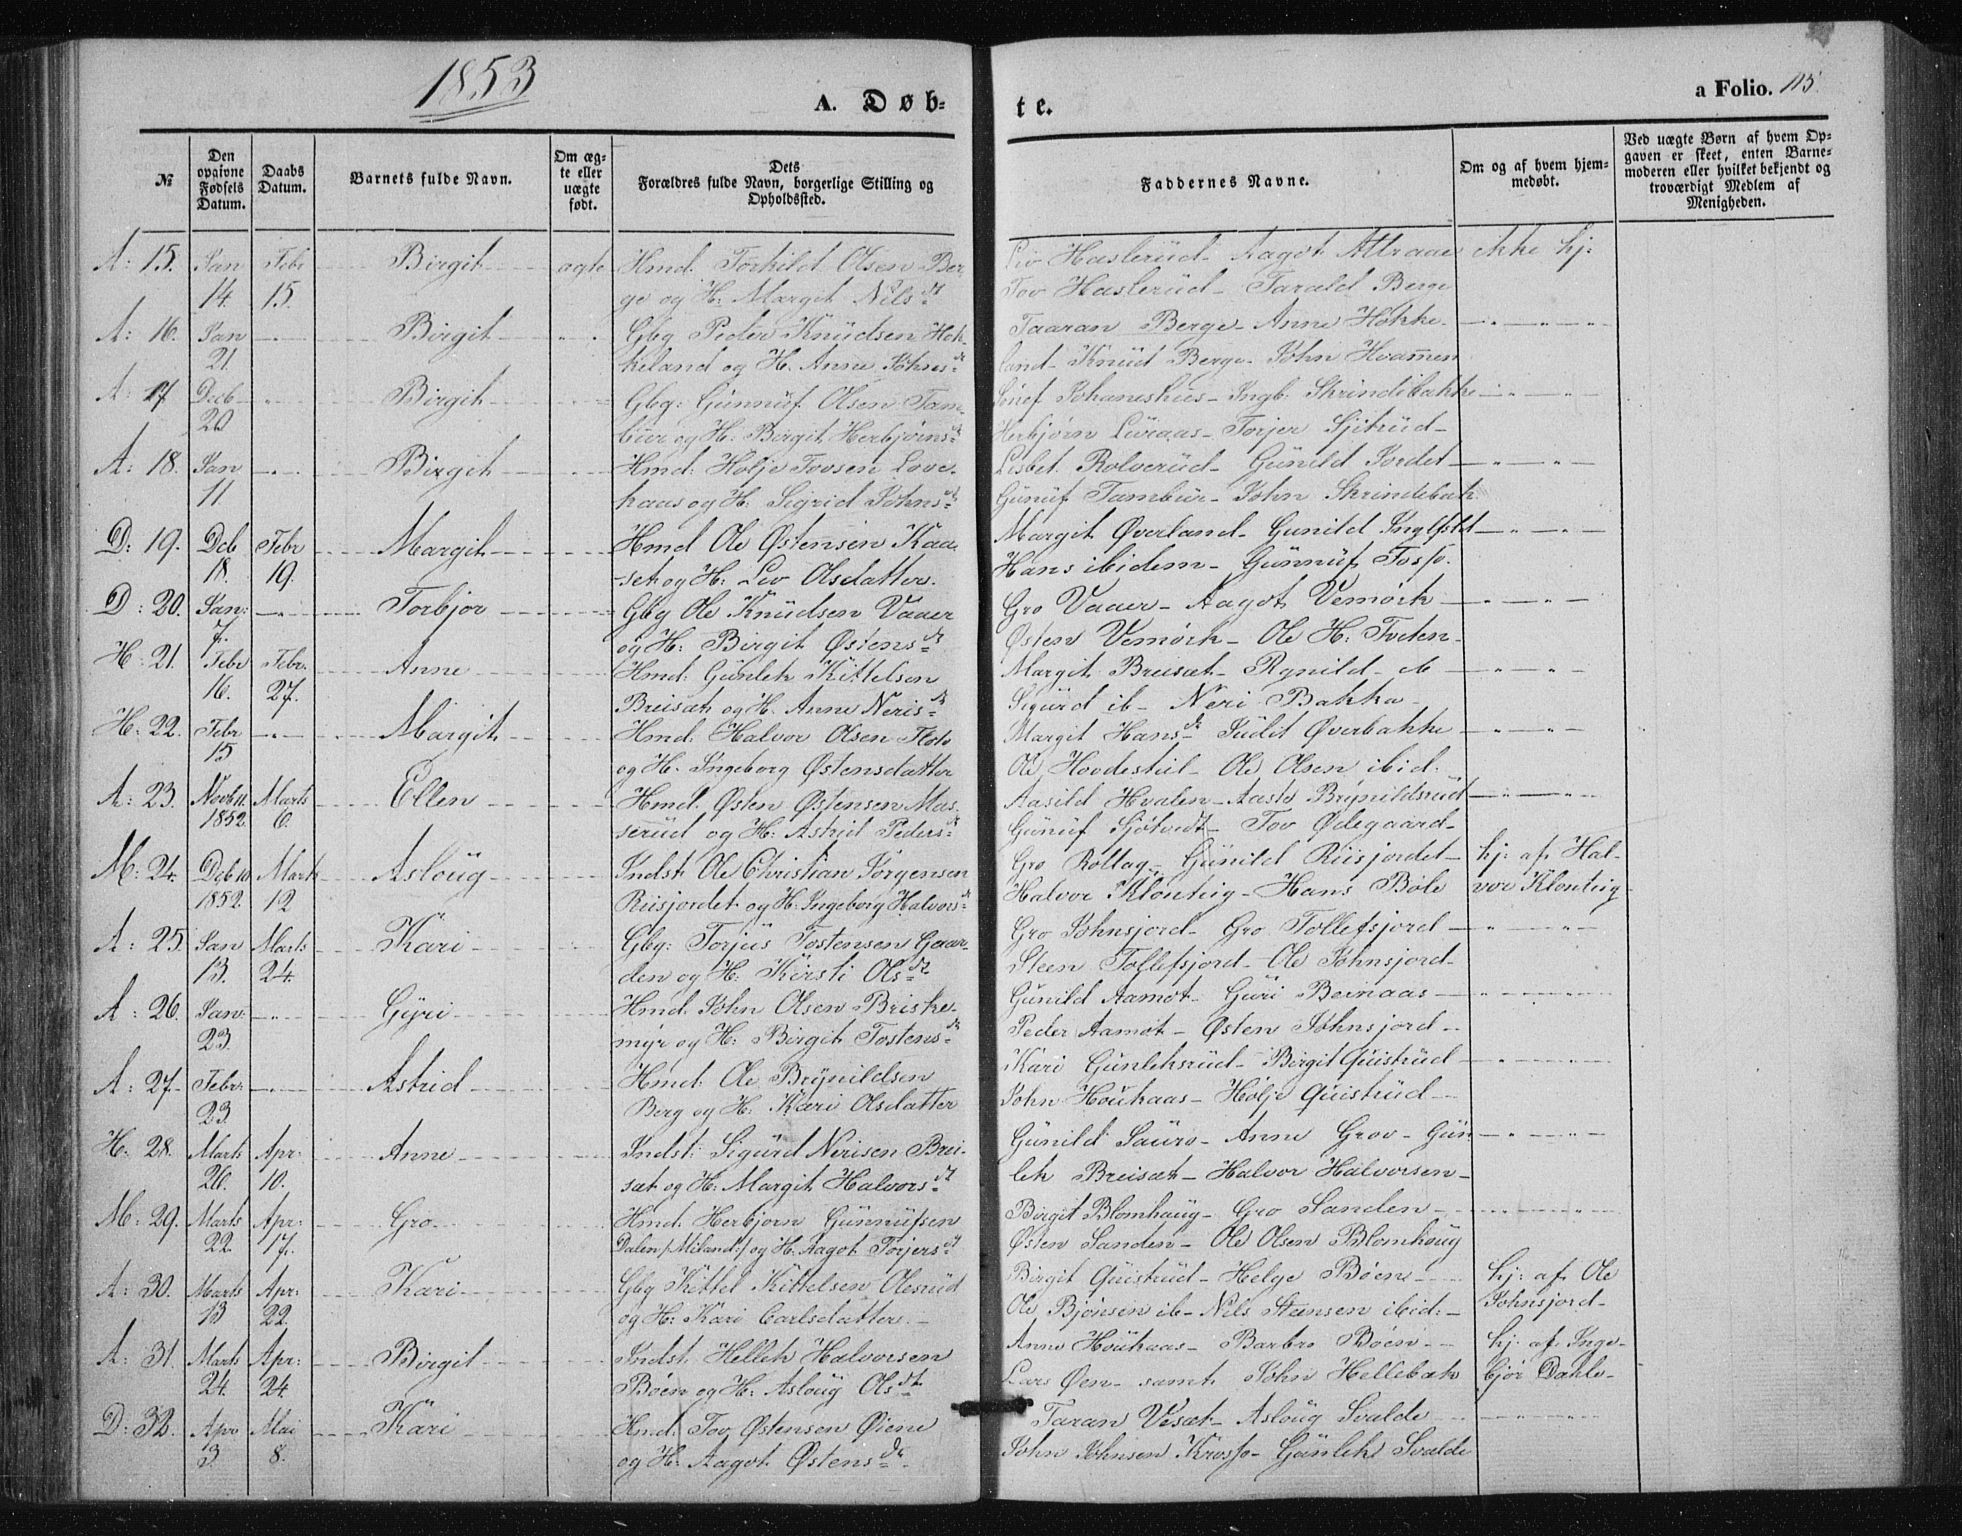 1853
A. Døb-
te.
a Folio. 115.
№
Den opgivne Fødsels Datum.
Daabs Datum.
Barnets fulde Navn.
Om ægte eller uægte født.
Dets Forældres fulde Navn, borgerlige Stilling og Opholdssted.
Faddernes Navne.
Om og af hvem hjemmedøbt.
Ved uægte Børn af hvem Opgaven er skeet, enten Barnemoderen eller hvilket bekjendt og troværdigt Medlem af Menigheden.
A: 15. Jan Febr Birgit ægte Hmd. Torkild Olsen Ber- Liv Haslerud - Aagot Attraae ikke hj:
14. 15. ge og H: Margit Nilsdt Tov Haslerud - Tarald Berge
A: 16. Jan Birgit Gbg Peder Knudsen Hok- Taaran Berge - Anne Hokke-
21. keland og H. Anne Johnsdt land - Knud Berge - John Hvammen
A: 17 Decb Birgit Gbg: Gunnuf Olsen Tam- Johaneshus - Ingb. Skrindebakke
20 bur og H: Birgit Herbjørnsdt Herbjørn Luraas - Torjer Sjitrud -
A: 18. Jan Birgit Hmd: Holje Tovsen Love- Lisbet Rolverud - Gunild Jordet
11. kaas og H: Sigrid Johnsdt Gunuf Tambur - John Skrindebak
D: 19. Dcb Febr Margit Hmd Ole Østensen Kaa- Margit Øverland - Gunild
18. 19. set og H: Liv Olsdatter. Hans ibidem - Gunnuf Fosso.
D: 20. Jan: Torbjor Gbg Ole Knudsen Vaaer Gro Vaaer - Aagot Vemork
7. og H: Birgit Østensdt Østen Vemork - Ole H: Tveten -
H: 21. Febr Febr. Anne Hmd: Gunlek Kittelsen Margit Breisæt - Rgnild ib
16. 27. Breisæt og H. Anne Nerisdt Sigurd ib - Neri Bakka -
H: 22. Febr Margit Hmd: Halvor Olsen Flot Margit Hansdt Judit Øverbakke
15 og H. Ingeborg Østensdatter Ole Hovdestul - Ole Olsen ibid.
A: 23. Novb 11. Marts Ellen Hmd. Østen Østensen Mas- Aasild Hvalen - Aaste Brynildsrud
1852 6. serud og H: Astrid Pedersdt Gunuf Sjotvedt - Tov Ødegaard -
M: 24. Dcb 10. Marts Asloug Indst Ole Christian Jørgensen Gro Rollag - Gunild Riisjordet - hj: af Hal-
1852. 12 Riisjordet og H: Ingeborg Halvorsdt Halvor Klonteig - Hans Bøle vor Klonteig
A: 25. Jan Marts Kari Gbg: Torjus Tostensen Gaar- Gro Johnsjord - Gro Tollefsjord
13. 24. den og H: Kirsti Olsdt Steen Tollefsjord - Ole Johnsjord -
A: 26. Jan: Gyri Hmd. John Olsen Briske- Gunild Aamot - Guri Bernaas
23. myr og H: Birgit Tostensdt Peder Aamot - Østen Johnsjord -
A: 27. Febr: Astrid Hmd: Ole Brynildsen Kari Gunleksrud - Birgit Quistrud
23. Berg og H: Kari Olsdatter John Houkaas - Holje Quistrud
H: 28. Marts Apr: Anne Indst: Sigurd Nerisen Brei- Gunild Sauro - Anne Grov - Gun
26. 10. sæt og H: Margit Halvorsdt lek Breisæt - Halvor Halvorsen -
M: 29. Marts Apr: Gro Hmd. Herbjorn Gunnufsen Birgit Blomhaug - Gro Sanden -
22. 17. Dalen /:Miland:/ og H. Aagot Torjersdt Østen Sanden - Ole Olsen Blomhoug
A: 30. Marts Apr: Kari Gbg Kittel Kittelsen Olesrud Birgit Quistrud - Helge Bøen hj: af Ole
13 22. og H: Kari Carlsdatter. Ole Bjønsen ib - Nils Steensen ibid: - Johnsjord -
A: 31. Marts Apr: Birgit Indst. Hellek Halvorsen Anne Houkaas - Barbro Bøen hj. af Inge-
24. 24. Bøen og H: Asloug Olsdt Lars Øen - samt John Hellebæk bjør Dahle -
D: 32. Apr Mai Kari Hmd. Tov Østensen Øiene Taran Vesæt - Asloug Svalde
3. 8. og H: Aagot Østensdt. John Johnsen Krosso - Gunlek Svalde